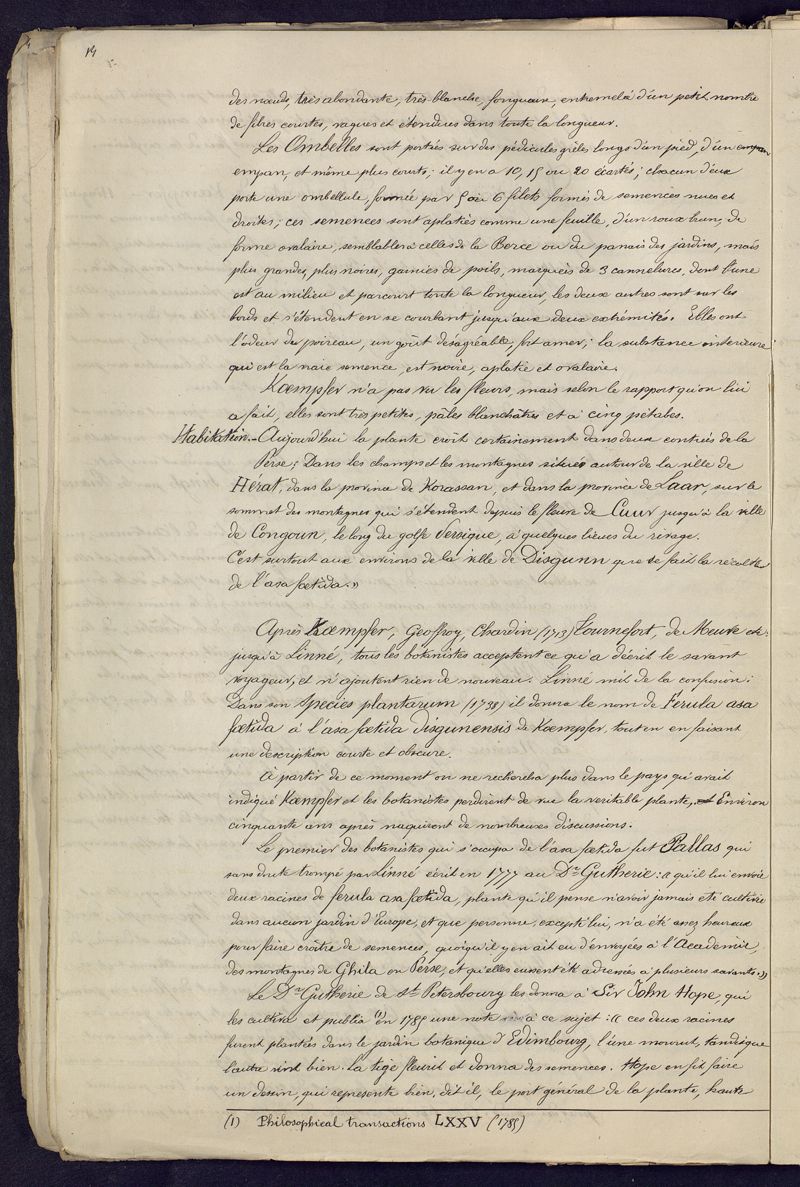 14
des nœuds, très abondante, très-blanche, fongueuse, entremêlé d'un petit nombre
de fibres courtes, vagues et étendues dans toute la longueur.
Les Ombelles sont portées sur des pédicules grêles longs d'un pied, d'un
empan, et même plus courts; il y en a 10, 15 ou 20 écartés; chacun d'eux
porte une ombellule, formée par 5 ou 6 filets formés de semences nues et
droites; ces semences sont aplaties comme une feuille, d'un roux brun, de
forme ovalaire, semblables à celles de la Berce ou du panais des jardins, mais
plus grandes, plus noires, garnies de poils, marquées de 3 cannelures, dont l'une
est au milieu et parcourt toute la longueur, les deux autres sont sur les
bords et s'étendent en se courbant jusqu'aux deux extrémités. Elles ont
l'odeur du poireau, un goût désagréable, fort amer; la substance interieure
qui est la vraie semence, est noire, aplatie et ovalaire.
Kœmpfer n'a pas vu les fleurs, mais selon le rapport qu'on lui
a fait, elles sont très petites, pâles blanchâtres et à cinq pétales.
Habitation._ Aujourd'hui la plante croît certainement dans deux contrées de la
Perse; Dans les champs et les montagnes situés autour de la ville de
Herat, dans la province de Korassan, et dans la province de Laar, sur le
sommet des montagnes qui s'étendent depuis le fleuve de Cuur jusqu'à la ville
de Congoun, le long du golfe Persique, à quelques lieues du rivage.
C'est surtout aux environs de la ville de Disgunn que se fait la récolte
de l'asa fœtida.»
Après Kœmpfer, Geoffroy, Chardin (1713) Tournefort, de Meuve etc.
jusqu'à Linné, tous les botanistes acceptent ce qu'a décrit le savant
voyageur, et n'ajoutent rien de nouveau. Linné mit de la confusion:
Dans son Species plantarum (1738) il donna le nom de Ferula asa
fœtida à l'asa fœtida disgunensis de Kœmpfer, tout en en faisant
une description courte et obscure.
A partir de ce moment on ne rechercha plus dans le pays qu'avait
indiqué Kœmpfer et les botanistes perdirent de vue la veritable plante, et Environ
cinquante ans après naquirent de nombreuses discussions.
Le premier des botanistes qui s'occupa de l'asa fœtida fut Pallas qui
sans doute trompé par Linné écrit en 1777 au Dr Gutherie: « qu'il lui envoie
deux racines de ferula asa fœtida, plante qu'il pense n'avoir jamais été cultivée
dans aucun jardin d'Europe, et que personne, excepté lui, n'a été assez heureux
pour faire croître de semences, quoiqu'il y en ait eu d'envoyées à l'Academie,
des montagnes de Ghila en Perse, et qu'elles eussent été adressées à plusieurs savants.»
Le Dr Gutherie de St Petersbourg les donna à Sir John Hope, qui
les cultiva et publia (1) en 1785 une note à ce sujet: « ces deux racines
furent plantées dans le jardin botanique d'Edimbourg, l'une mourut, tandisque
l'autre vint bien. La tige fleurit et donna des semences. Hope en fit faire
un dessin, qui représente bien, dit il, le port général de la plante, haute
(1) Philosophical transactions LXXV (1785)